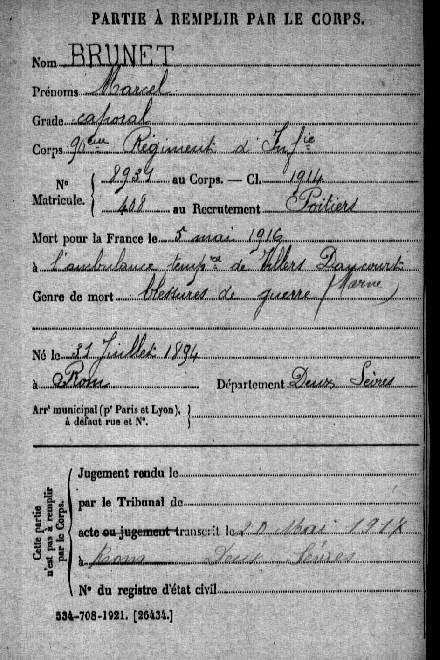 PARTIE À REMPLIR PAR LE CORPS.
Nom BRUNET
Prénoms Marcel
Grade caporal
Corps 90eme Régiment d'Infie
N° Matricule. { 8937 au Corps. — Cl. 1914
408 au Recrutement Poitiers
Mort pour la France le 5 mai 1916
à l'ambulance tempre de Villers Daucourt
Genre de mort blessures de guerre (Marne)
Né le 31 Juillet 1894
à Rom Département Deux Sèvres
Arrt municipal (pr Paris et Lyon), à défaut rue et N°. }
Cette partie n'est pas à remplir par le Corps.
Jugement rendu le
par le Tribunal de
acte ou jugement transcrit le 20 Mai 1917
à Rom Deux Sèvres
N° du registre d'état civil
534-708-1921. [26434.]